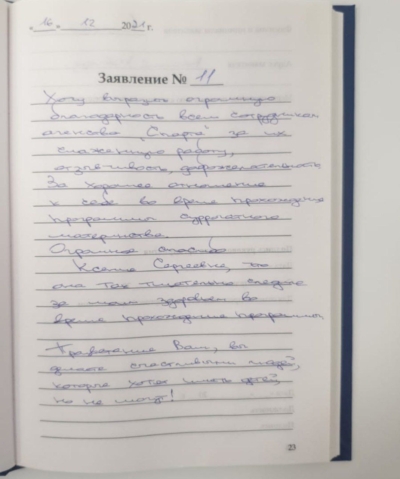 « 16 » 12 2021 г.
Заявление № 11
Хочу выразить огромную
благодарность всем сотрудникам
агенства "Спарта" за их
слаженную работу,
отзывчивость, доброжелательность
За хорошее отношение
к себе во время прохождения
программы суррогатного
материнства.
Огромное спасибо
Ксении Сергеевне, что
она так тщательно следила
за моим здоровьем во
время прохождения программы
Процветания Вам, вы
делаете счастливыми людей,
которые хотят иметь детей,
но не могут!
23